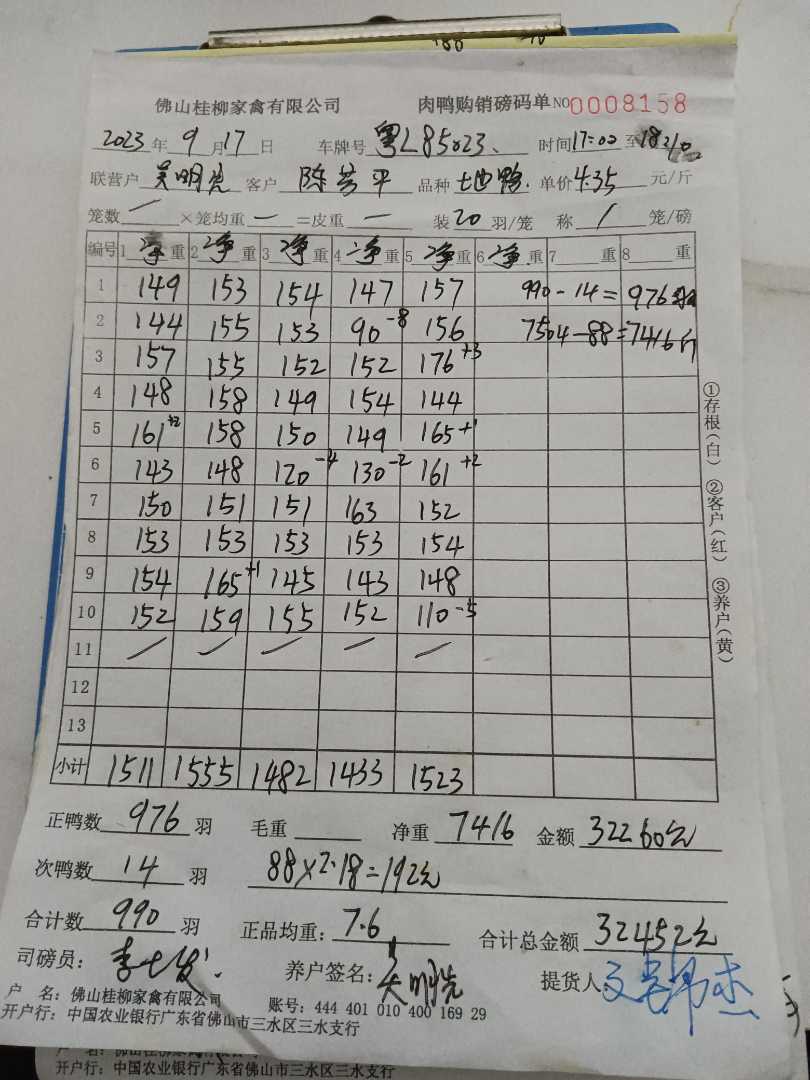 佛山桂柳家禽有限公司 肉鸭购销磅码单 NO 0008158
2023年9月17日 车牌号 粤L85023 时间17:02至
联营户 吴明先 客户 陈芳平 品种 土地鸭 单价4.35元/斤
笼数 / ×笼均重 — =皮重 — 装20羽/笼 称 / 笼/磅
编号 1 净重 2 净重 3 净重 4 净重 5 净重 6 净重 7 重 8 重
1 149 153 154 147 157 990-14=976羽
2 144 155 153 90-8 156 7504-88=7416斤
3 157 155 152 152 176+3
4 148 158 149 154 144
5 161+2 158 150 149 165+1
6 143 148 120-4 130-2 161+2
7 150 151 151 163 152
8 153 153 153 153 154
9 154 165+1 145 143 148
10 152 159 155 152 110-5
11 / / / / /
12
13
小计 1511 1555 1482 1433 1523
①存根(白) ②客户(红) ③养户(黄)
正鸭数 976 羽 毛重 净重 7416 金额 32260元
次鸭数 14 羽 88×2.18=192元
合计数 990 羽 正品均重: 7.6 合计总金额 32452元
司磅员: 养户签名: 吴明先 提货人
户 名: 佛山桂柳家禽有限公司 账号: 444 401 010 400 169 29
开户行: 中国农业银行广东省佛山市三水区三水支行
户 名: 佛山桂柳家禽有限公司
开户行: 中国农业银行广东省佛山市三水区三水支行